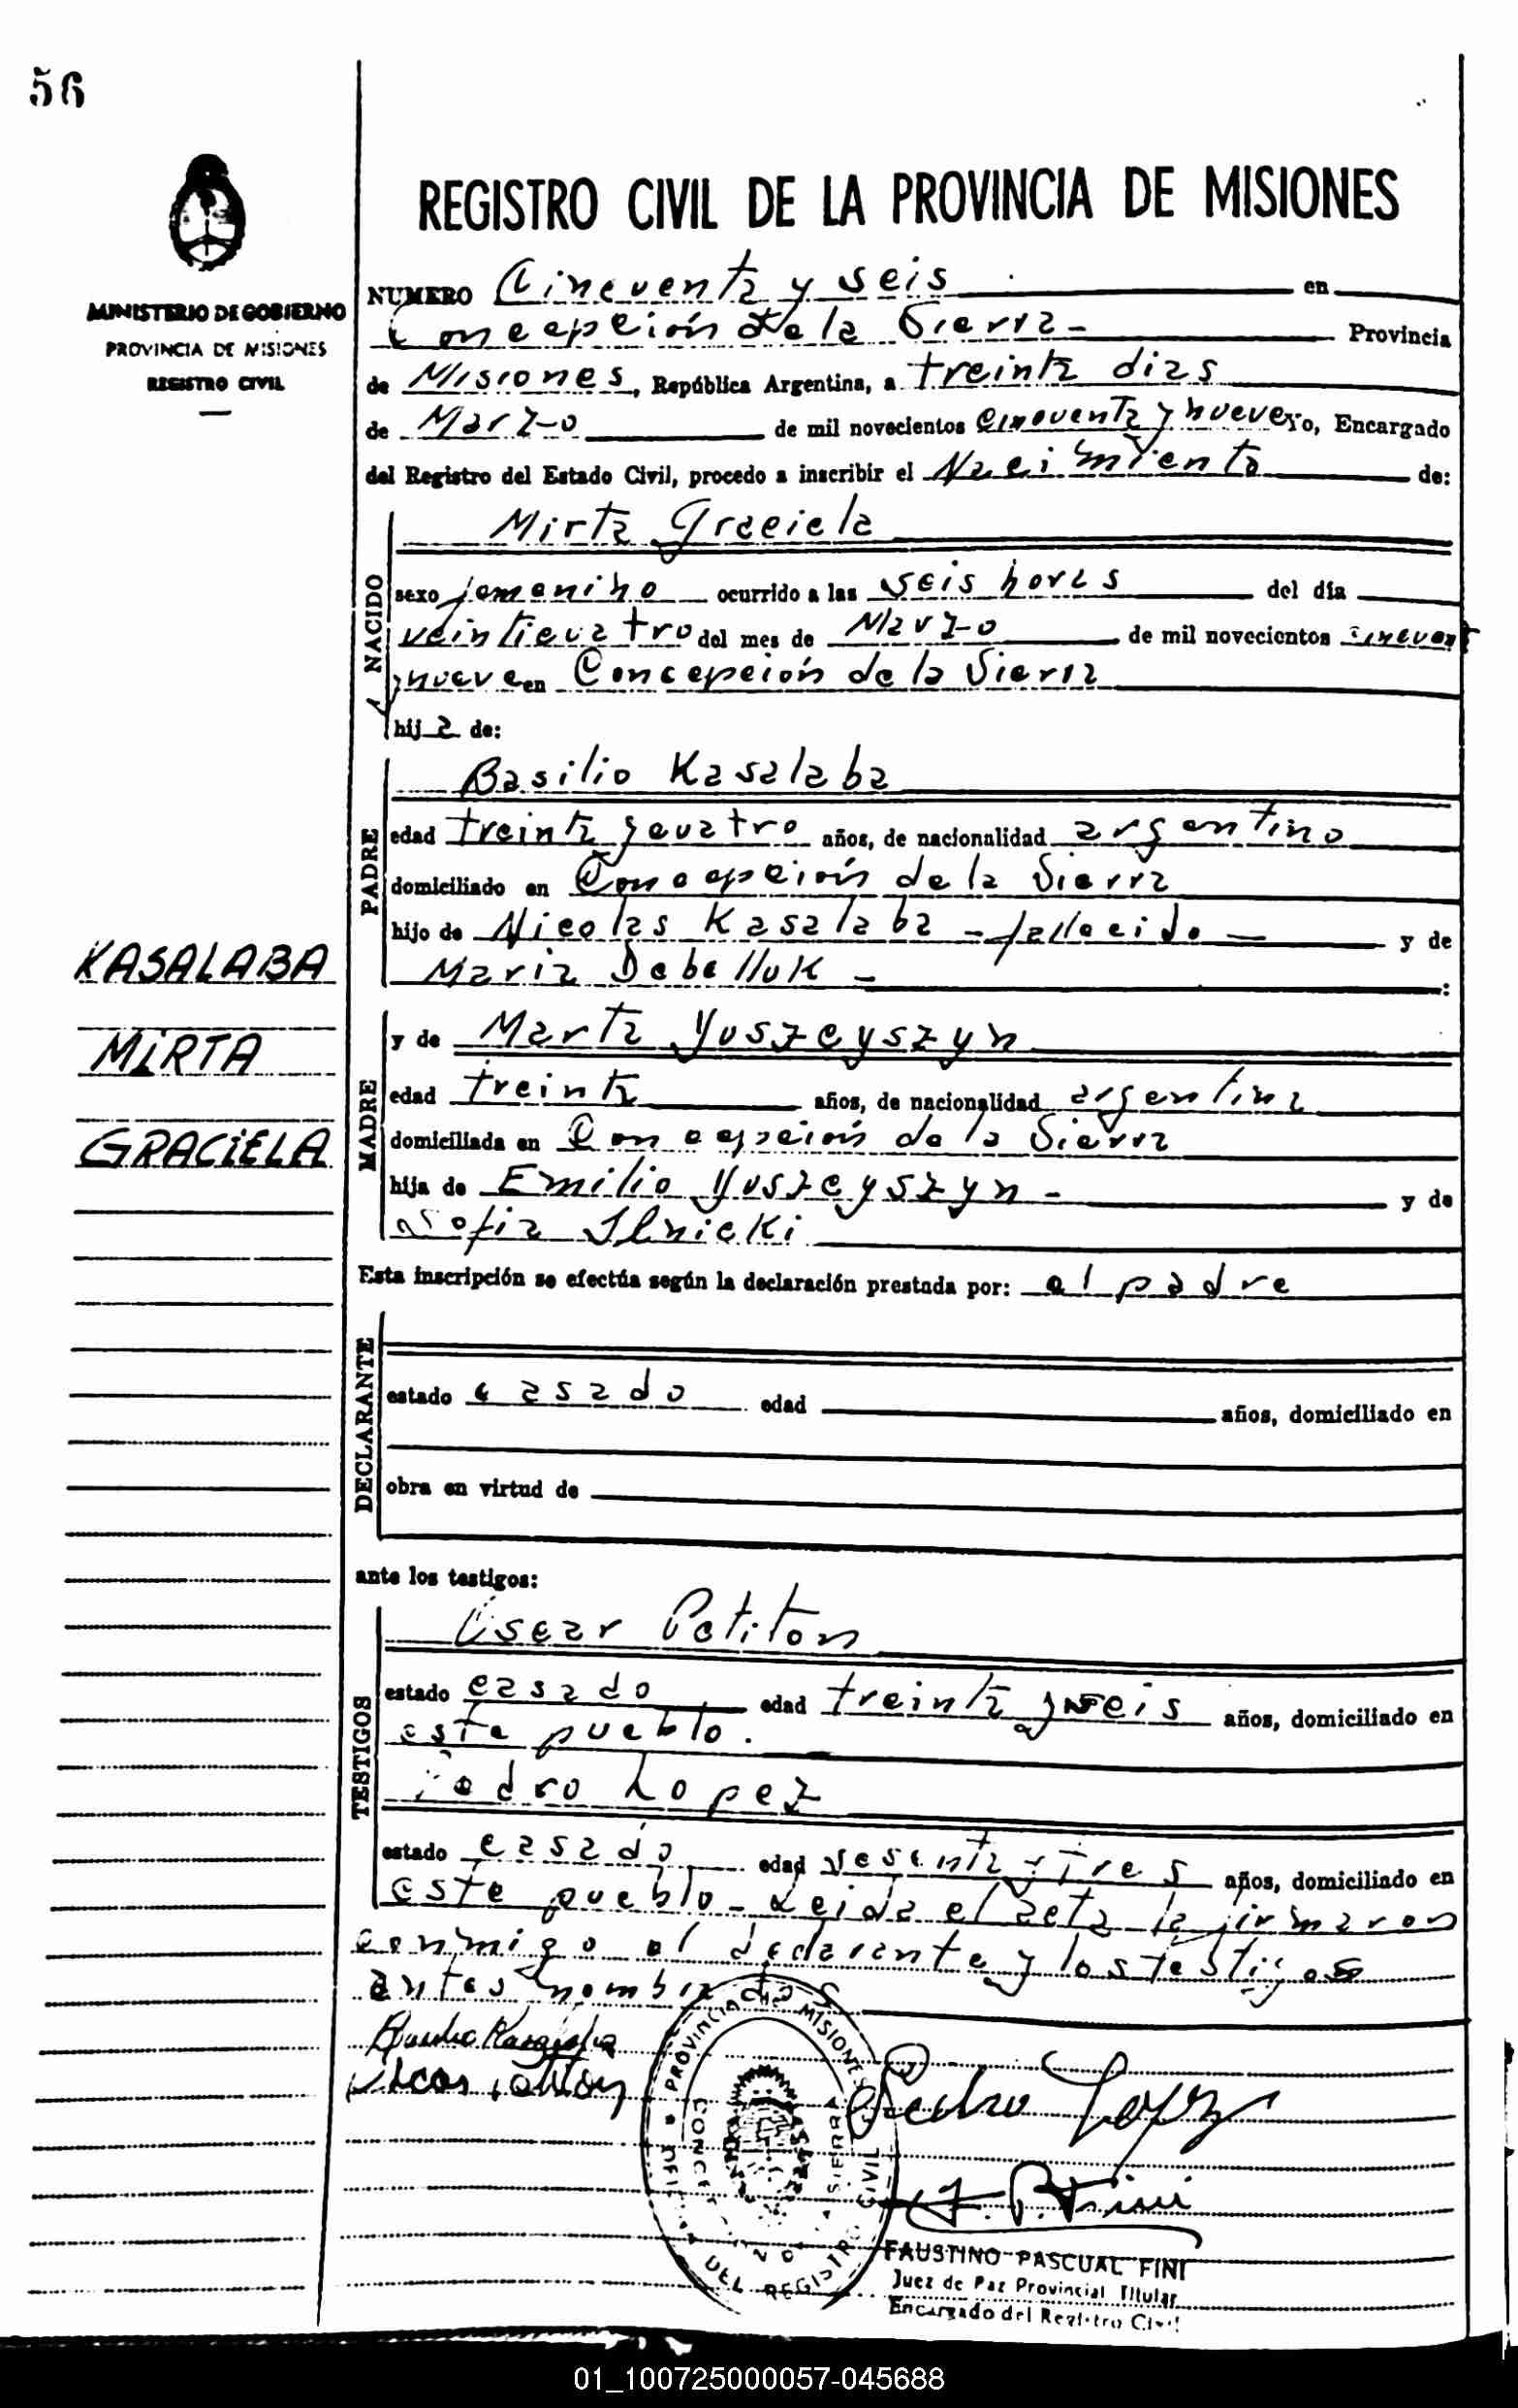 56
MINISTERIO DE GOBIERNO
PROVINCIA DE MISIONES
REGISTRO CIVIL
REGISTRO CIVIL DE LA PROVINCIA DE MISIONES
NUMERO Cincuenta y seis en
Concepción de la Sierra - Provincia
de Misiones, República Argentina, a treinta dias
de Marzo de mil novecientos cincuenta y nueve yo, Encargado
del Registro del Estado Civil, procedo a inscribir el Nacimiento de:
Mirta Graciela
NACIDO
sexo femenino ocurrido a las seis horas del día
veinticuatro del mes de Marzo de mil novecientos cincuent
y nueve en Concepción de la Sierra
hija de:
PADRE
Basilio Kasalaba
edad treinta y cuatro años, de nacionalidad argentino
domiciliado en Concepción de la Sierra
hijo de Nicolas Kasalaba - fallecido - y de
Maria Debelluk - :
KASALABA
MIRTA
GRACIELA
MADRE
y de Marta Yuszcyszyn
edad treinta años, de nacionalidad argentina
domiciliada en Concepción de la Sierra
hija de Emilio Yuszcyszyn - y de
Sofia Ilnicki
Esta inscripción se efectúa según la declaración prestada por: el padre
DECLARANTE
estado casado edad años, domiciliado en
obra en virtud de
ante los testigos:
TESTIGOS
Oscar Petiton
estado casado edad treinta y seis años, domiciliado en
este pueblo.
Pedro Lopez
estado casado edad sesenta y tres años, domiciliado en
este pueblo - Leida el acta la firmaron
conmigo el declarante y los testigos
antes nombrados
Pedro Lopez
PROVINCIA DE MISIONES
DEL REGISTRO CIVIL
SIERRA
F. P. Fini
FAUSTINO PASCUAL FINI
Juez de Paz Provincial Titular
Encargado del Registro Civil
01_100725000057-045688